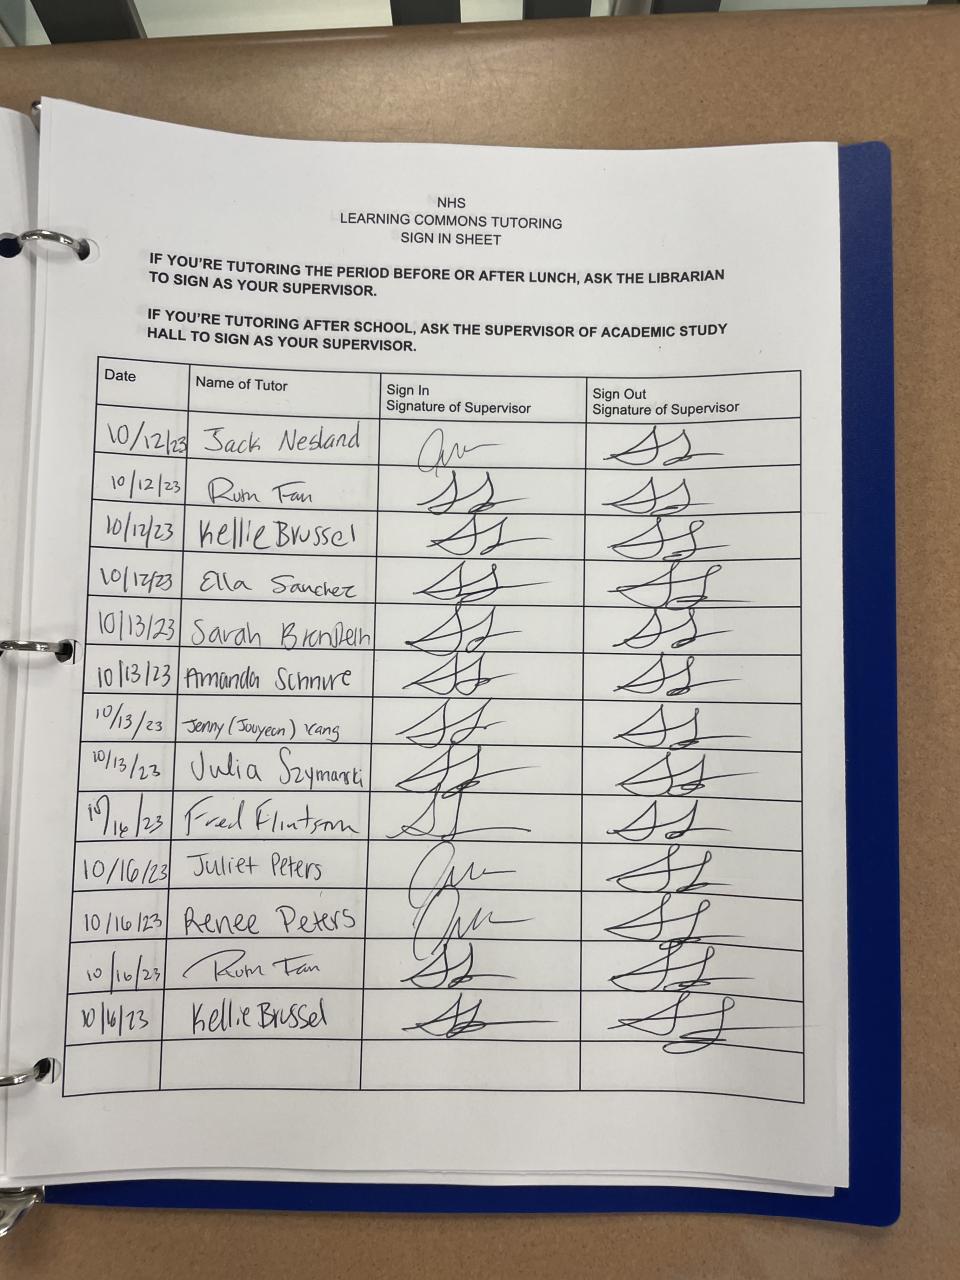 NHS
LEARNING COMMONS TUTORING
SIGN IN SHEET
IF YOU'RE TUTORING THE PERIOD BEFORE OR AFTER LUNCH, ASK THE LIBRARIAN
TO SIGN AS YOUR SUPERVISOR.
IF YOU'RE TUTORING AFTER SCHOOL, ASK THE SUPERVISOR OF ACADEMIC STUDY
HALL TO SIGN AS YOUR SUPERVISOR.
Date Name of Tutor Sign In Sign Out
Signature of Supervisor Signature of Supervisor
10/12/23 Jack Nesland
10/12/23 Fan
10/12/23 Kellie Brussel
10/12/23 Ella Sanchez
10/13/23 Sarah
10/13/23 Amanda
10/13/23 Jenny (Jouyeon) Kang
10/13/23 Julia Szymanski
10/16/23 Fred
10/16/23 Juliet Peters
10/16/23 Renee Peters
10/16/23 Fan
10/16/23 Kellie Brussel